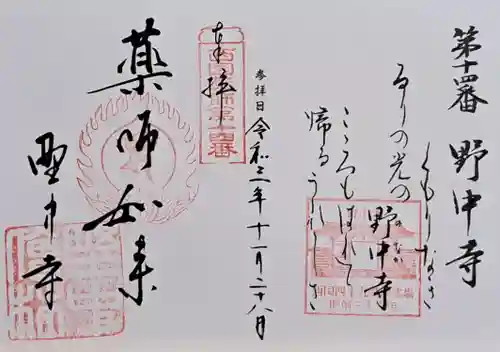 第十四番 野中寺
くもりなき
るりの光の
野中寺
こゝろもはれて
帰るうれしさ
参拝日 令和三年十一月二十八日
奉拝
西国薬師第十四番
薬師如来
野中寺